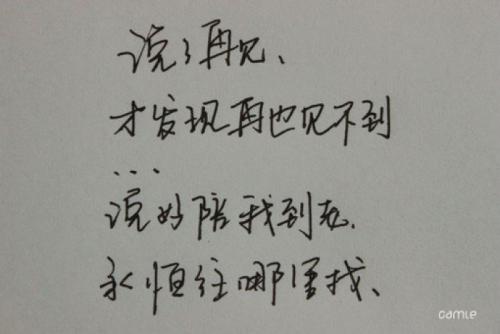 说了再见、
才发现再也见不到
...
说好陪我到老、
永恒往哪里找、
camle